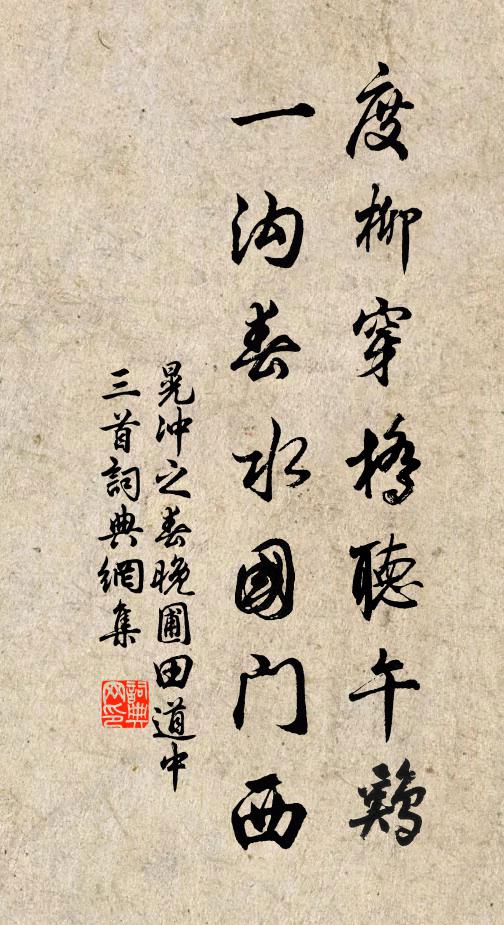 度柳穿橋聽午鷄
一沟春水國门西
晃冲之春晚圃田道中
三首詞典網集
詞典网印